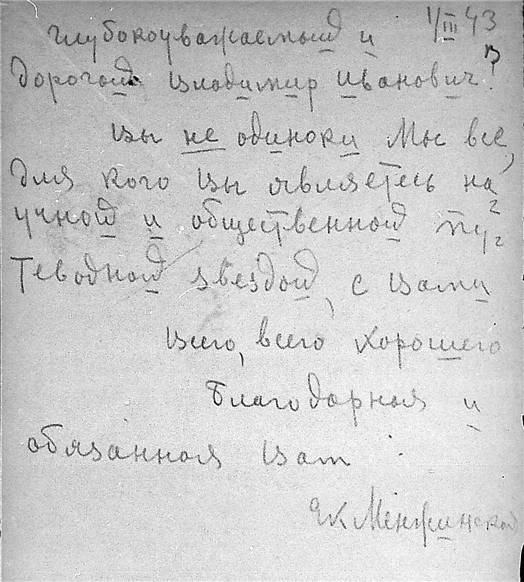 1/III 43
Глубокоуважаемый и
дорогой Владимир Иванович!
Вы не одиноки Мы все,
для кого Вы являетесь на
учной и общественной пу
теводной звездой, с Вами
Всего, всего хорошего
Благодарная и
обязанная Вам
Ек Менжинской